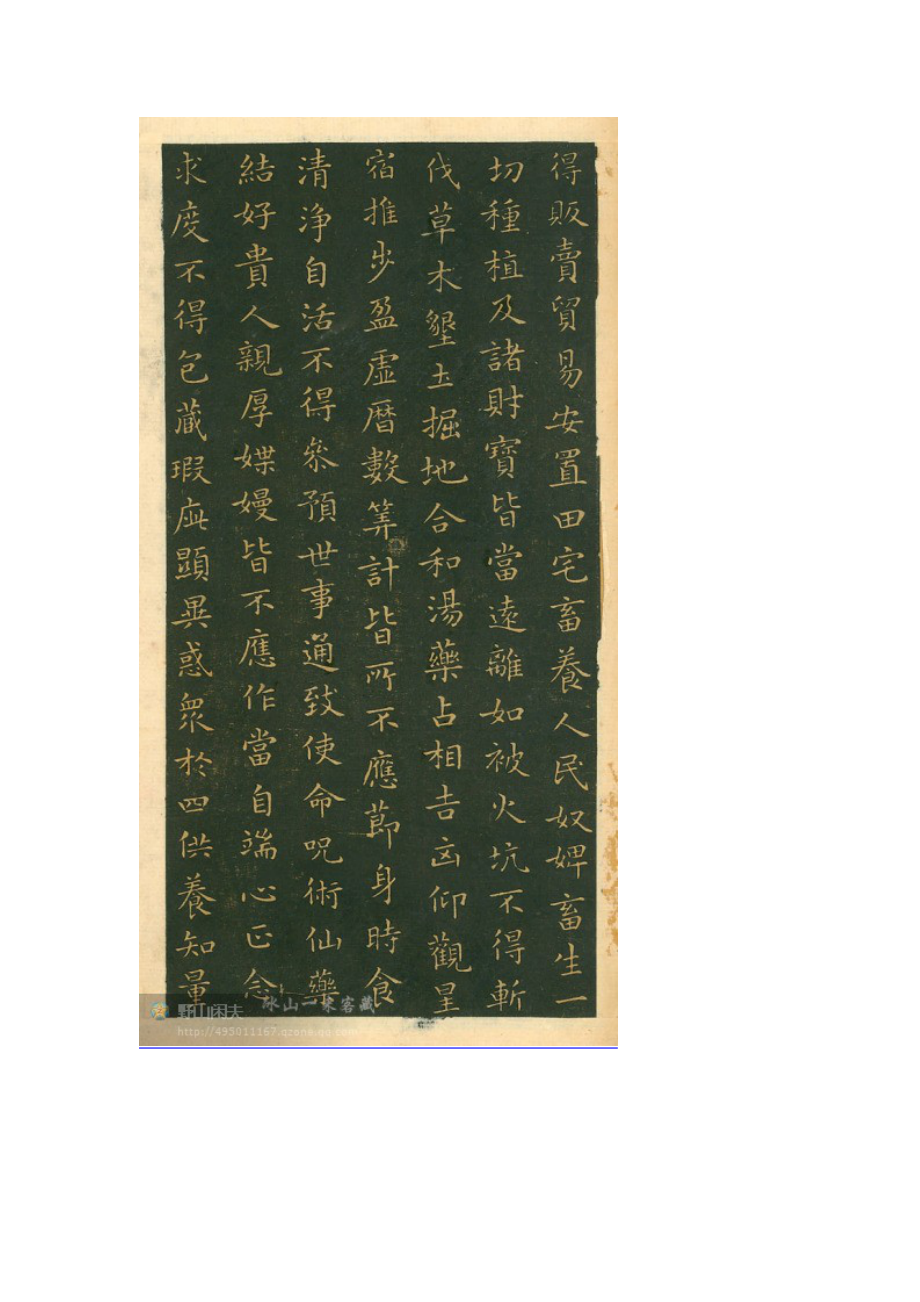 得販賣貿易安置田宅畜養人民奴婢畜生一
切種植及諸財寶皆當遠離如被火坑不得斬
伐草木墾土掘地合和湯藥占相吉凶仰觀星
宿推步盈虛曆數筭計皆所不應莭身時食
清淨自活不得叅預世事通致使命呪術仙藥
結好貴人親厚媟嫚皆不應作當自端心正念
求度不得包藏瑕疵顯異惑衆於四供養知量
野山困夫
冰山一來客藏
http://495011167.qzone.qq.com